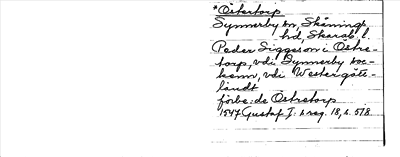 *Östertorp
Synnerby sn, Skånings
hd, Skarab. l.
Peder Siggeson i Östre-
torp, vdi Synnerby soc-
kenn, vdi Westergött-
landt
förbe:de Östretorp
1547 Gustaf I:s reg. 18, s. 578